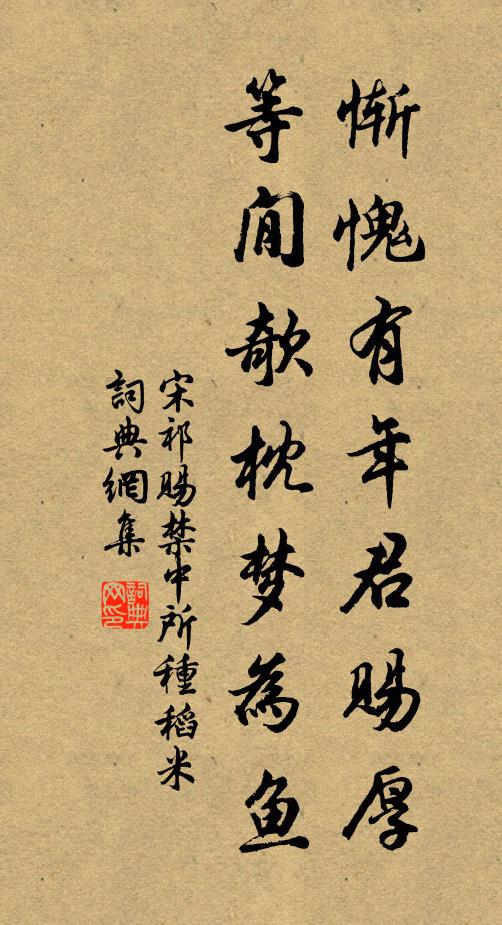 慚愧有年君賜厚
等閒欹枕梦為鱼
宋祁賜禁中所種稻米
詞典網集
詞典
网印